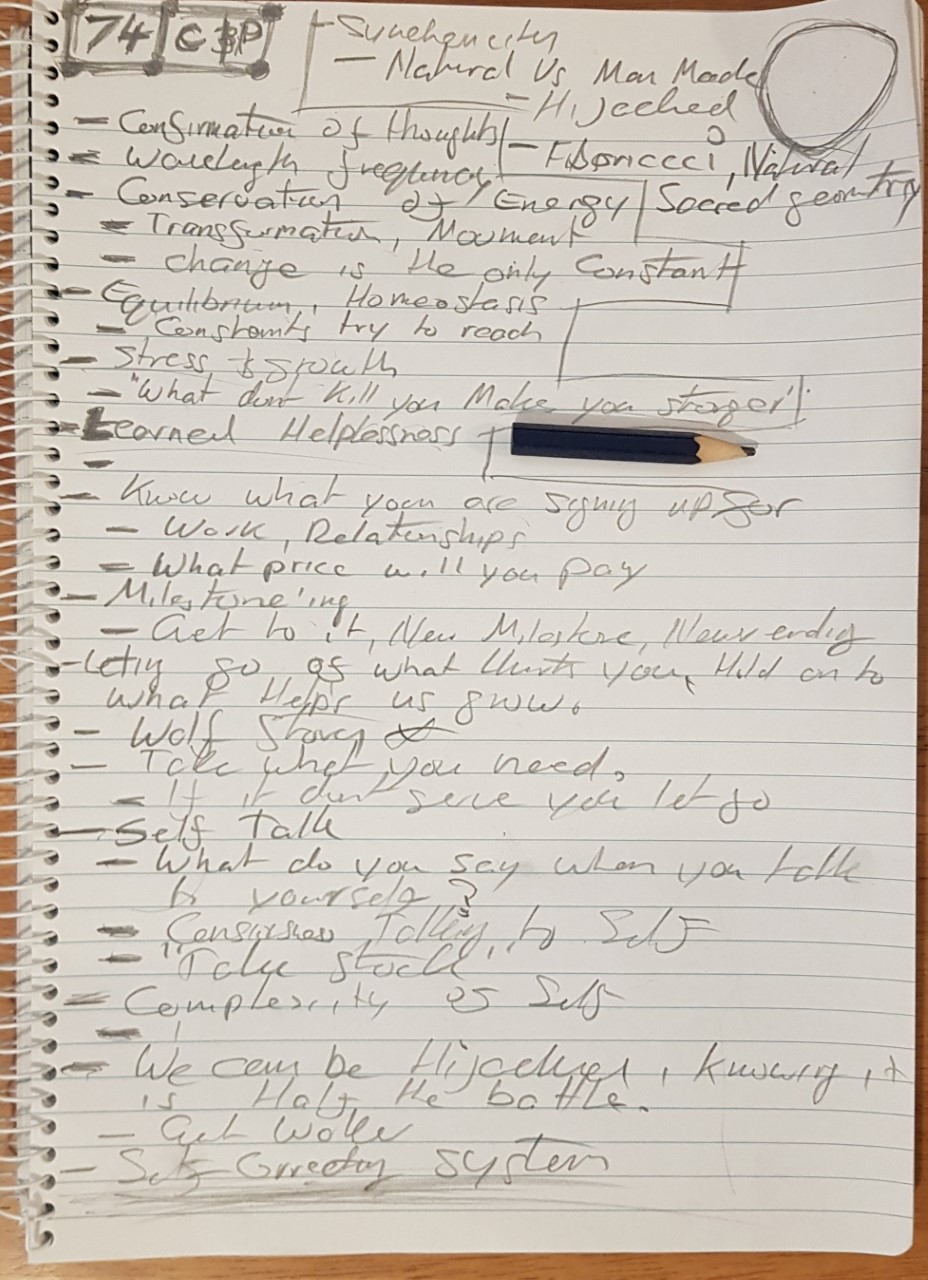 74 C3P
- Synchencity
- Natural Vs Man Made
- Hijacked
- Confirmation of thoughts
- Fibonicci, Natural
- Wavelength frequency
Sacred geometry
- Conservation of Energy
- Transformation, Movment
- change is the only Constant
- Equilibrium, Homeostasis
- Constants try to reach
- Stress & growth
- "What dont Kill you Make you stronger"
- Learned Helplessness
-
- Know what you are signing up for
- Work, Relationships
- What price will you pay
- Milestone'ing
- Get to it, New Milestone, Never ending
- Letting go of what Hurts you, Hold on to
what Helps us grow.
- Wolf Story
- Take what you need.
- If it dont serve you let go
- Self Talk
- What do you say when you talk
to yourself?
- Conscious Talking to Self
- "Take stock"
- Complexity of Self
-
- We can be Hijacked, Knowing it
is Half the battle.
- Get Woke
- Self-Correcting System